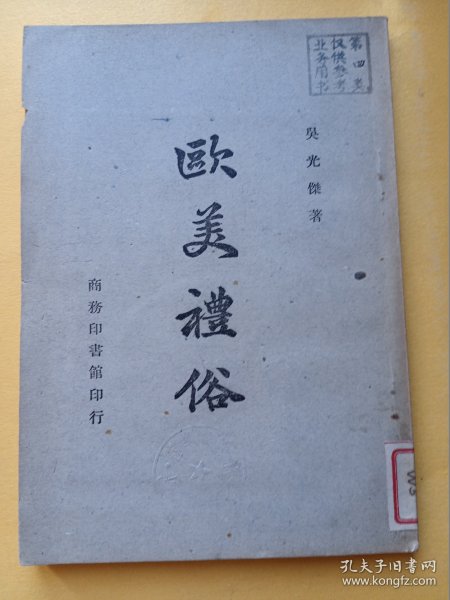 第四类
仅供参考
业务用书
吳光傑著
歐美禮俗
商務印書館印行
孔夫子旧书网
www.kongfz.com